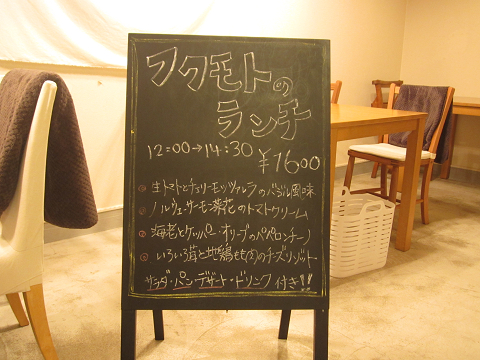 フクモトの
ランチ
12:00→14:30
¥1600
生トマトとチェリーモッツァレラのバジル風味
ノルウェーサーモン菜花のトマトクリーム
海老とケッパー・オリーブのペペロンチーノ
いろいろ茸と地鶏もも肉のチーズリゾット
サラダ・パン・デザート・ドリンク 付き!!